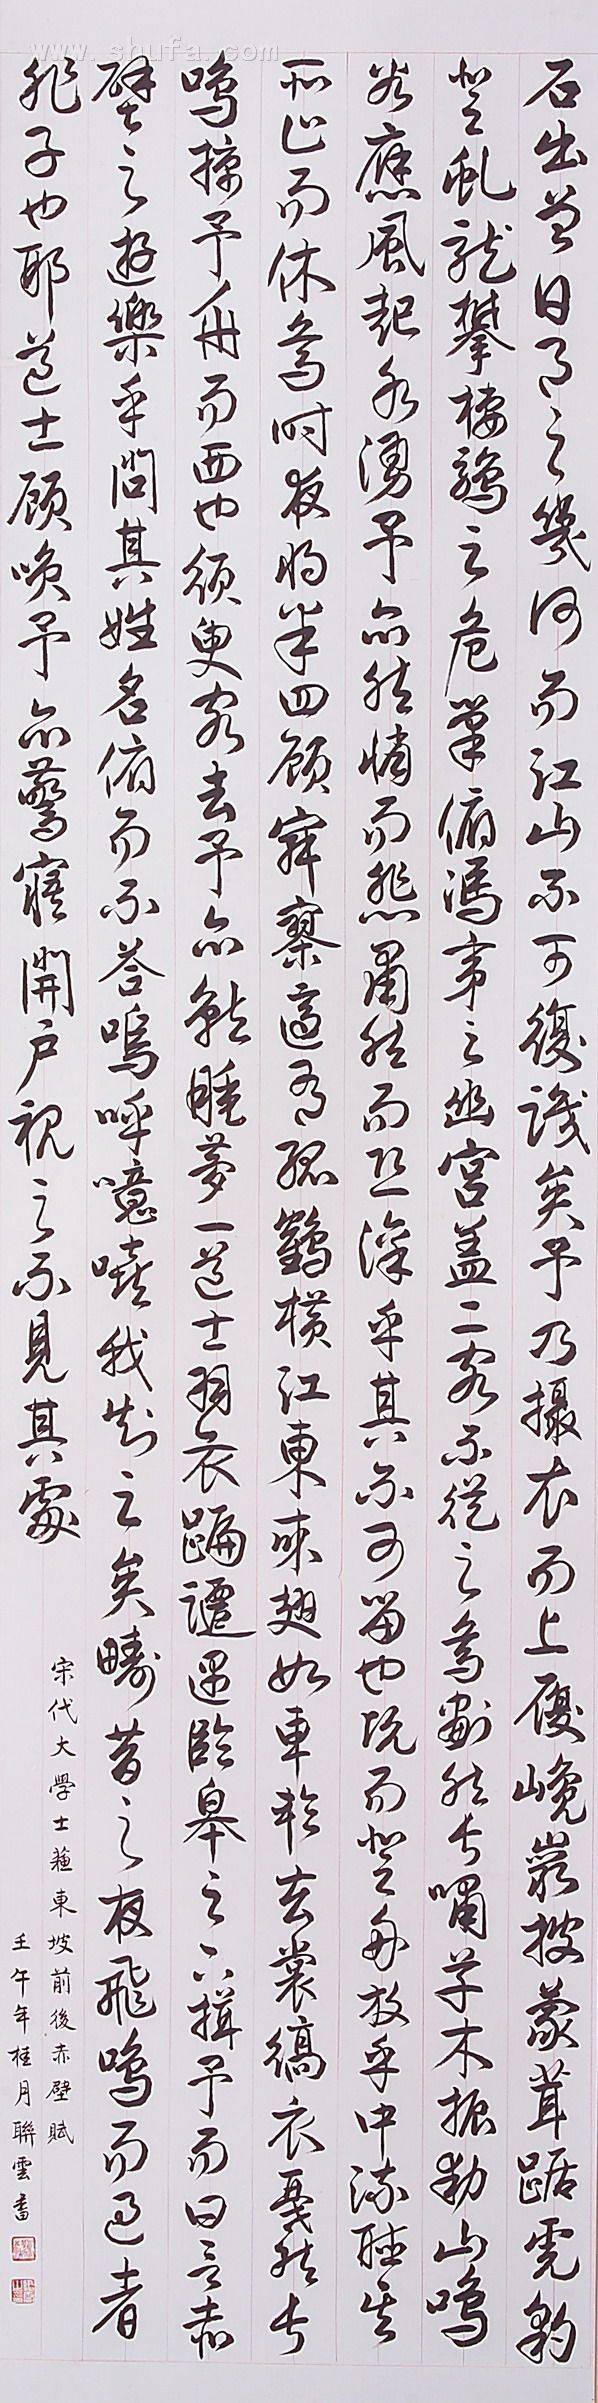 石出曾日月之幾何而江山不可復識矣予乃攝衣而上履巉巖披蒙茸踞虎豹
登虬龍攀棲鶻之危巢俯馮夷之幽宮盖二客不從之焉劃然長嘯草木振動山鳴
谷應風起水湧予亦然悄而悲肅然而恐凜乎其不可留也而登舟放乎中流聽其
所止而休焉時夜將半四顧寂寥適有孤鶴橫江東來翅如車輪玄裳縞衣戛然長
鳴掠予舟而西也須臾客去予亦就睡夢一道士羽衣蹁躚過臨皋之下揖予而曰言赤
壁之遊樂乎問其姓名俯而不答嗚呼噫嘻我知之矣疇昔之夜飛鳴而過者
非子也耶道士顧喚予亦驚寤開戶視之不見其處
宋代大學士蘇東坡前後赤壁賦
壬午年桂月聯雲書
www.shufa.com